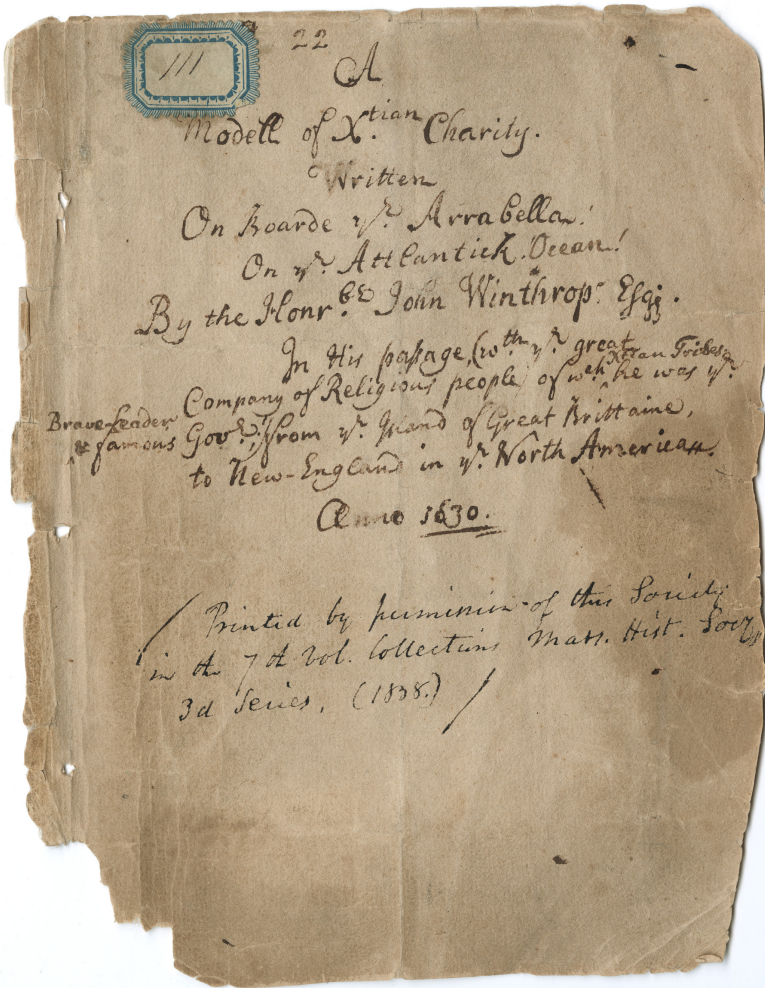 111
22
A
Modell of Xtian Charity.
Written
On Boarde ye. Arrabella!
On ye. Attlantick. Ocean!
By the Honrble John Winthrop. Esqr.
In His passage, (wth ye. great
Company of Religious people, of wch Xtian Tribes he was ye.
Brave Leader & famous Govr;) from ye. Island of Great Brittaine,
to New-England in ye. North America.
Anno 1630.
/ Printed by permission of this Society
in the 7th Vol. Collections Mass. Hist. Socy,
3d Series, (1838.) /